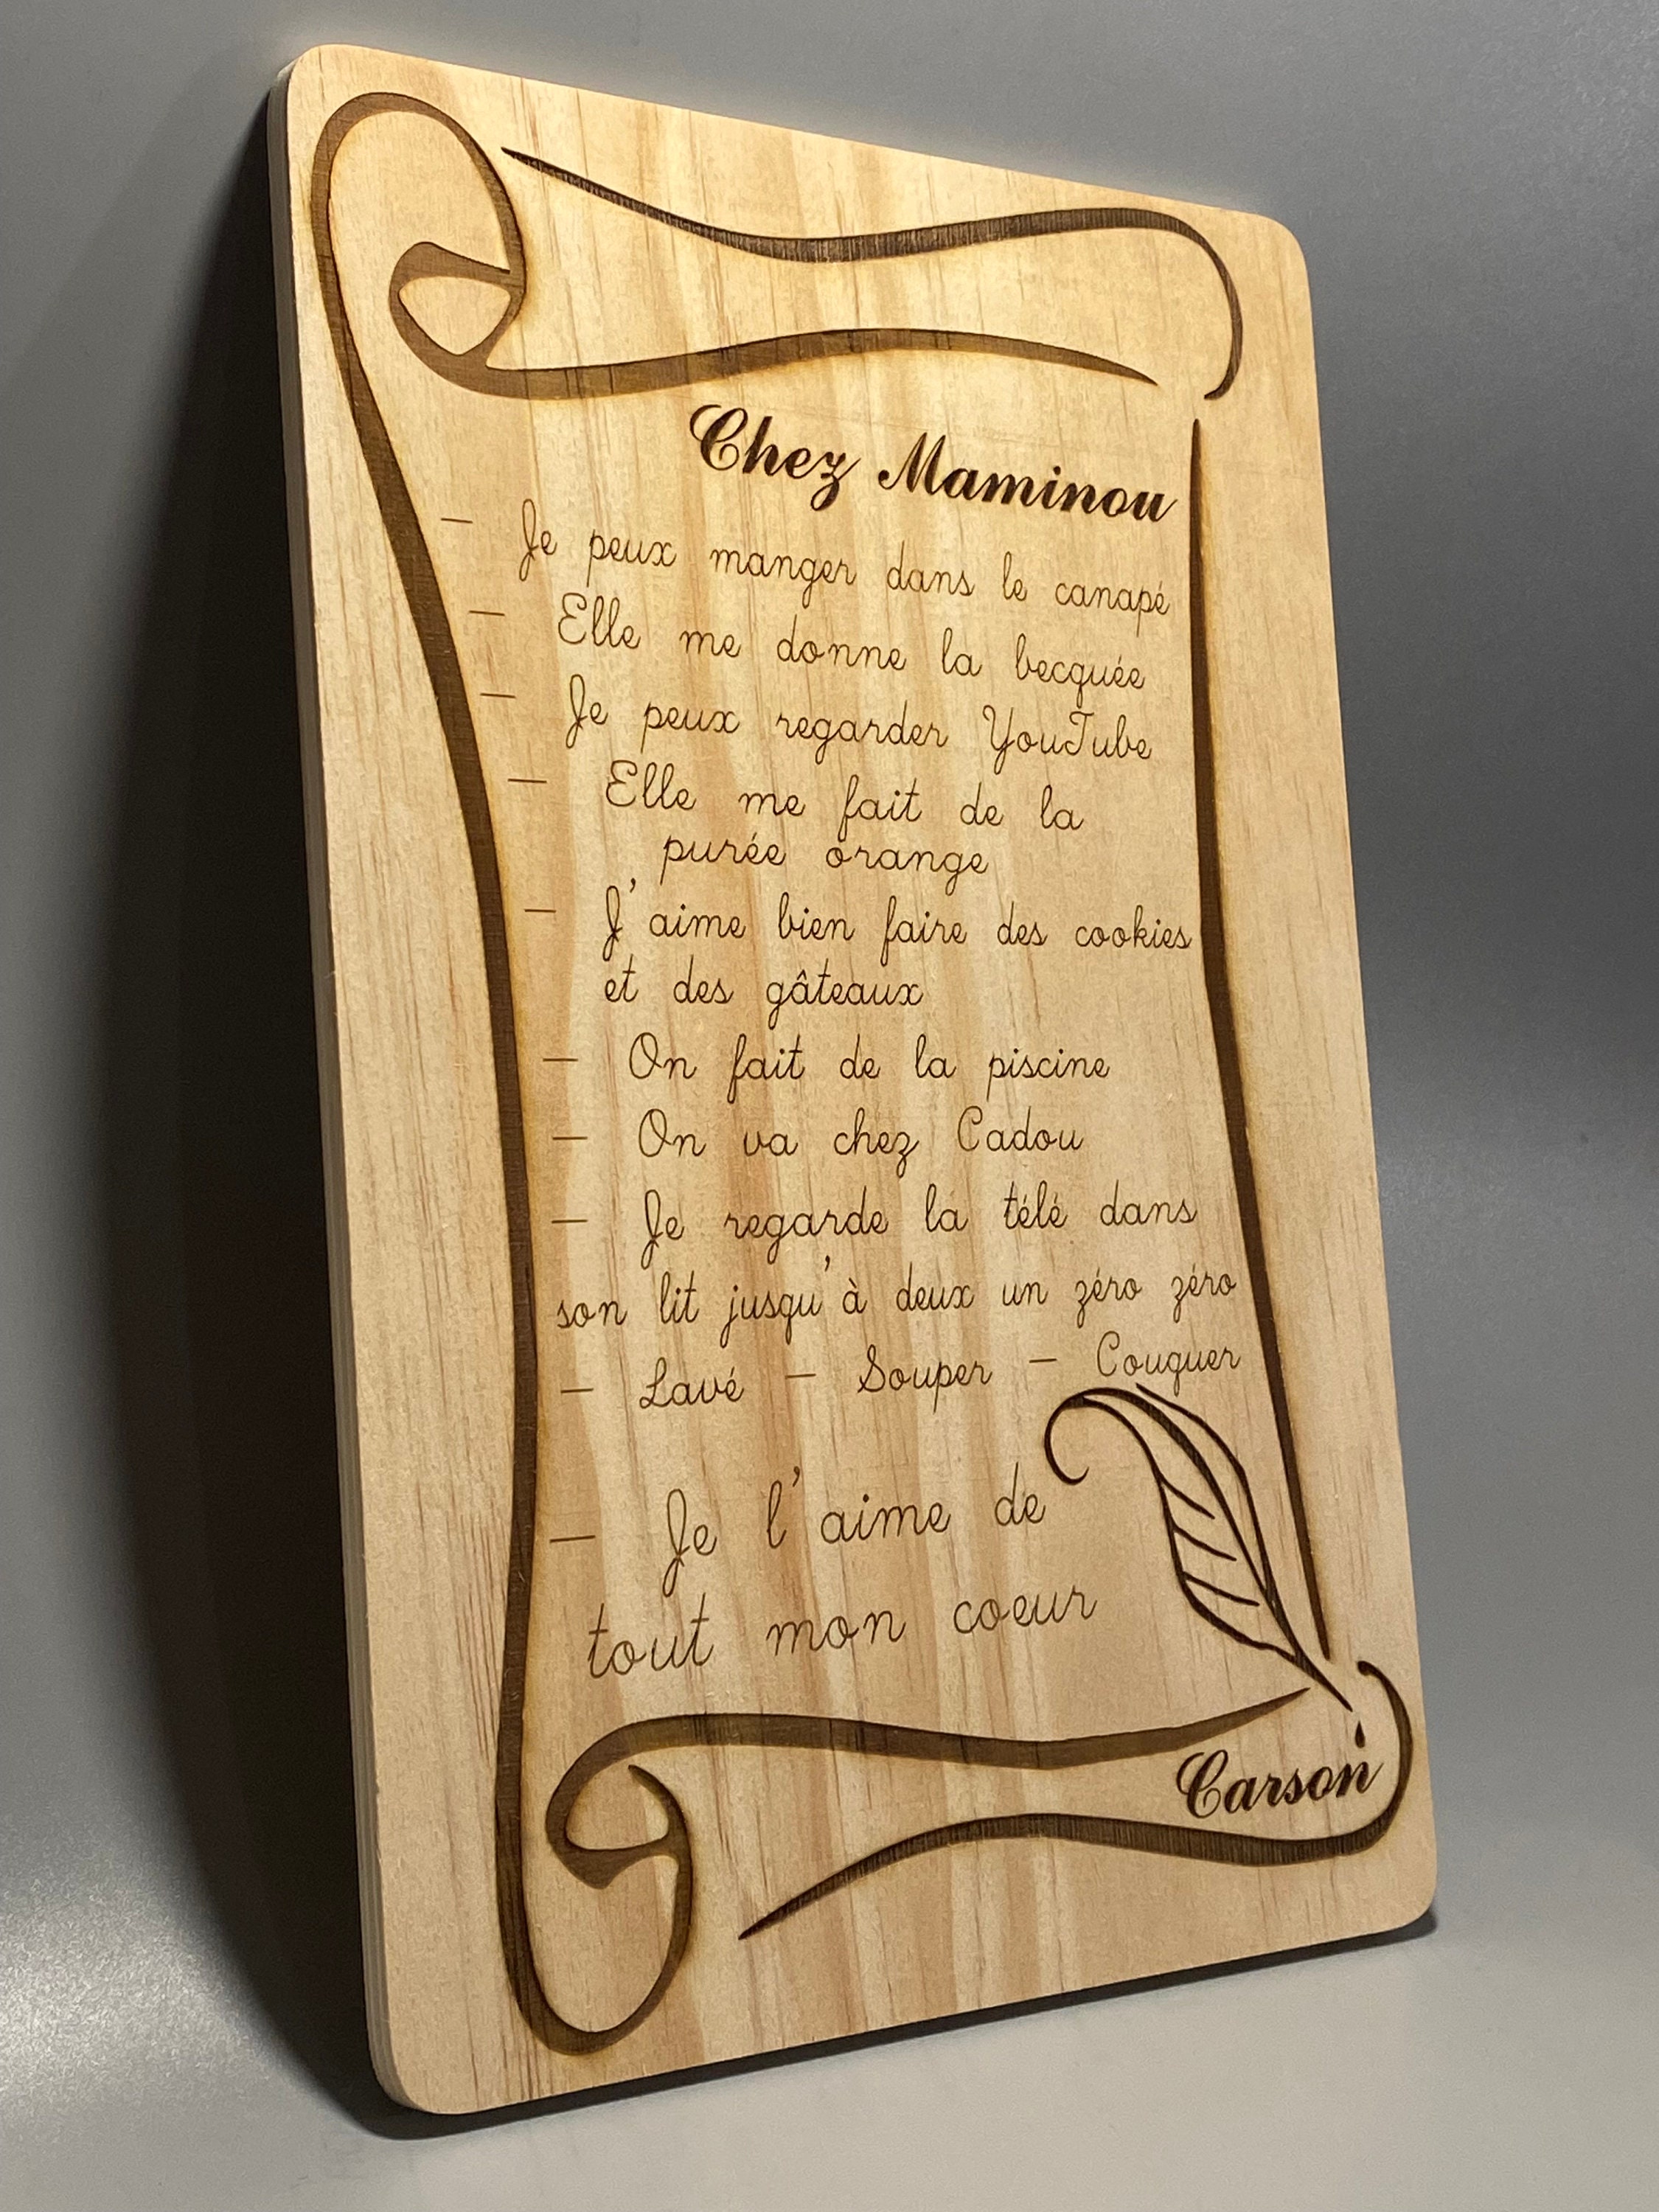 Chez Maminou
- Je peux manger dans le canapé
- Elle me donne la becquée
- Je peux regarder YouTube
- Elle me fait de la
purée orange
- J'aime bien faire des cookies
et des gâteaux
- On fait de la piscine
- On va chez Cadou
- Je regarde la télé dans
son lit jusqu'à deux un zéro zéro
- Lavé - Souper - Couquer
- Je l'aime de
tout mon coeur
Carson